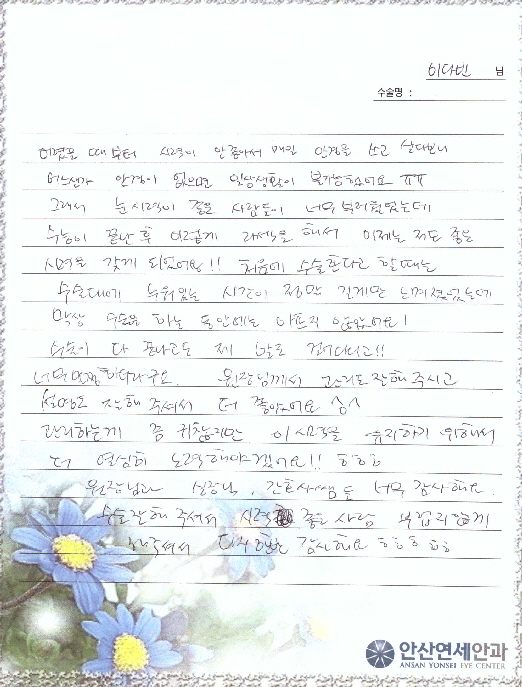 이다빈 님
수술명 :
어렸을 때부터 시력이 안좋아서 매일 안경을 쓰고 살다보니
어느샌가 안경이 없으면 일상생활이 불가능했어요 ㅠㅠ
그래서 눈 시력이 좋은 사람들이 너무 부러웠었는데
수능이 끝난 후 이렇게 라섹을 해서 이제는 저도 좋은
시력을 갖게 되었어요!! 처음에 수술한다고 할때는
수술대에 누워있는 시간이 정말 길게만 느껴졌었는데
막상 수술을 하는 동안에는 아프지 않았어요!
수술이 다 끝나고도 제 발로 걸어다니고!!
너무 멀쩡하더라구요. 원장님께서 관리도 잘해 주시고
설명도 잘해 주셔서 더 좋았어요 ^^
관리하는게 좀 귀찮지만 이 시력을 유지하기 위해서
더 열심히 노력해야겠어요!! ㅎㅎㅎ
원장님과 실장님, 간호사쌤들 너무 감사해요.
수술 잘해 주셔서 시력 좋은 사람 부럽지않게
해주셔서 다시한번 감사해요 ㅎㅎㅎㅎㅎ
안산연세안과
ANSAN YONSEI EYE CENTER